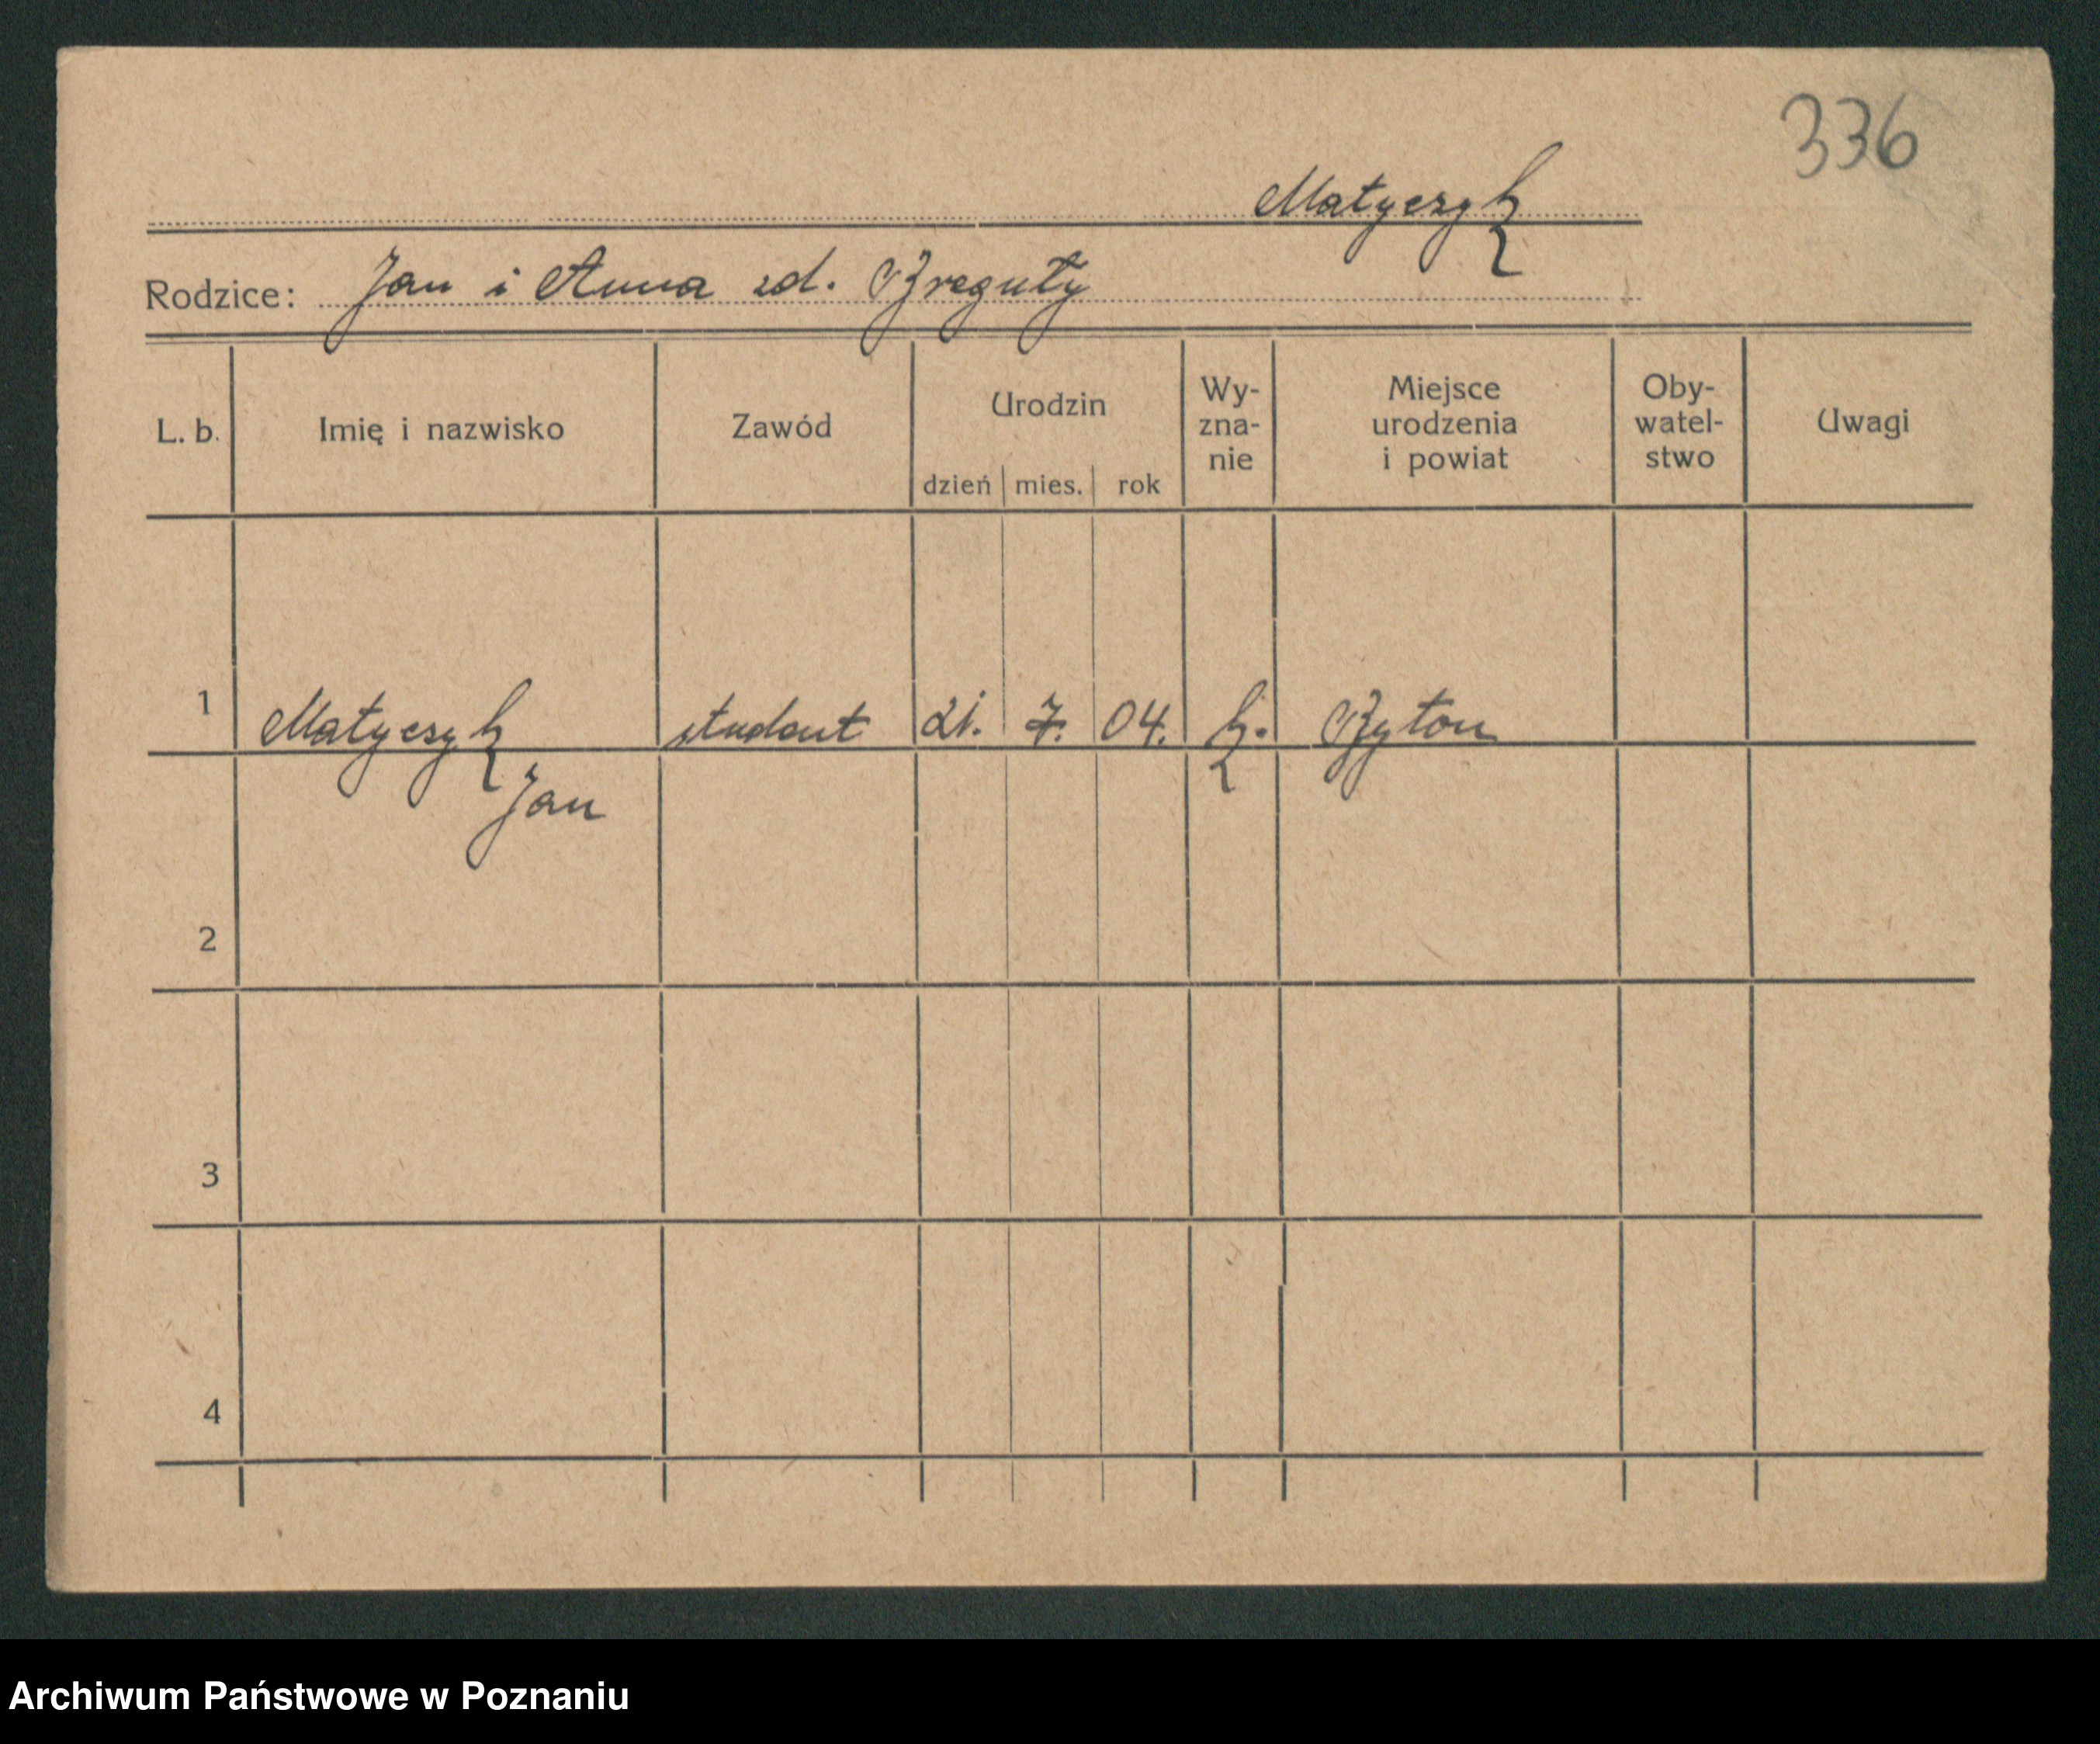 336
Matyczyk
Rodzice: Jan i Anna zd. Breguły
L. b. Imię i nazwisko Zawód Urodzin dzień mies. rok Wy-zna-nie Miejsce urodzenia i powiat Oby-watel-stwo Uwagi
1 Matyczyk student 21. 7. 04. k. Byton
Jan
2
3
4
Archiwum Państwowe w Poznaniu